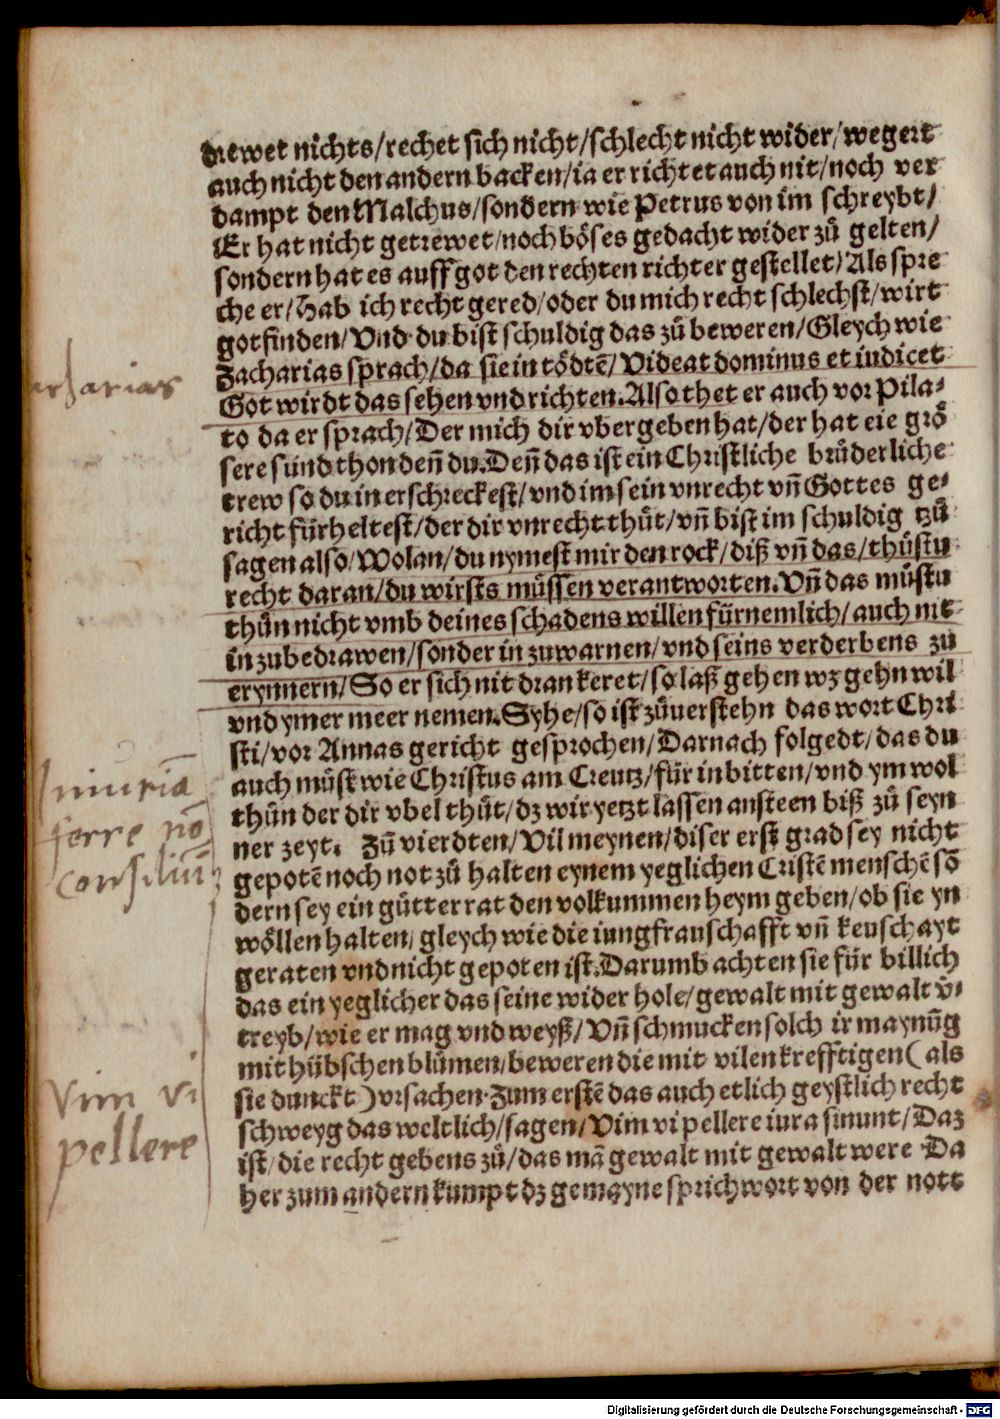 drewet nichts/rechet sich nicht/schlecht nicht wider/wegert
auch nicht den andern backen/ia er richtet auch nit/noch ver
dampt den Malchus/sondern wie Petrus von im schreybt/
Er hat nicht getrewet/noch böses gedacht wider zů gelten/
sondern hat es auff got den rechten richter gestellet/Als spre
che er/Hab ich recht gered/oder du mich recht schlechst/wirt
got finden/Vnd du bist schuldig das zů beweren/Gleych wie
Zacharias sprach/da sie in tödtē/Videat dominus et iudicet
Zacharias
Got wirdt das sehen vnd richten.Also thet er auch vor Pila⸗
to da er sprach/Der mich dir vbergeben hat/der hat eie grö
sere sünd thon deñ du.Deñ das ist ein Christliche brůderliche
trew so du in erschreckest/vnd im sein vnrecht vñ Gottes ge⸗
richt fürheltest/der dir vnrecht thůt/vñ bist im schuldig tzů
sagen also/Wolan/du nymest mir den rock/diß vñ das/thůstu
recht daran/du wirsts müssen verantworten.Vñ das můstu
thůn nicht vmb deines schadens willen fürnemlich/auch nit
in zubedrawen/sonder in zuwarnen/vnd seins verderbens zu
erynnern/So er sich nit dran keret/so laß gehen wz gehn wil
vnd ymer meer nemen.Syhe/so ist zůuerstehn das wort Chri
sti/vor Annas gericht gesprochen/Darnach folgedt/das du
auch můst wie Christus am Creutz/für in bitten/vnd ym wol
thůn der dir vbel thůt/dz wir yetzt lassen ansteen biß zů seyn
ner zeyt. Zů vierdten/Vil meynen/diser erst grad sey nicht
gepotē noch not zů halten eynem yeglichen Cristē menschē sö
dern sey ein gůtter rat den volkummen heym geben/ob sie yn
wöllen halten/gleych wie die iungfrauschafft vñ keuschayt
geraten vnd nicht gepoten ist.Darumb achten sie für billich
das ein yeglicher das seine wider hole/gewalt mit gewalt v̄⸗
treyb/wie er mag vnd weyß/Vñ schmucken solch ir maynūg
mit hübschen blůmen/beweren die mit vilen krefftigen(als
sie dunckt)vrsachen.Zum erstē das auch etlich geystlich recht
schweyg das weltlich/sagen/Vim vi pellere iura sinunt/Daz
ist/die recht gebens zů/das mā gewalt mit gewalt were Da
her zum andern kumpt dz gemayne sprichwort von der nott
Iniuriā
ferre nō
consiliū
Vim vi
pellere
Digitalisierung gefördert durch die Deutsche Forschungsgemeinschaft - DFG